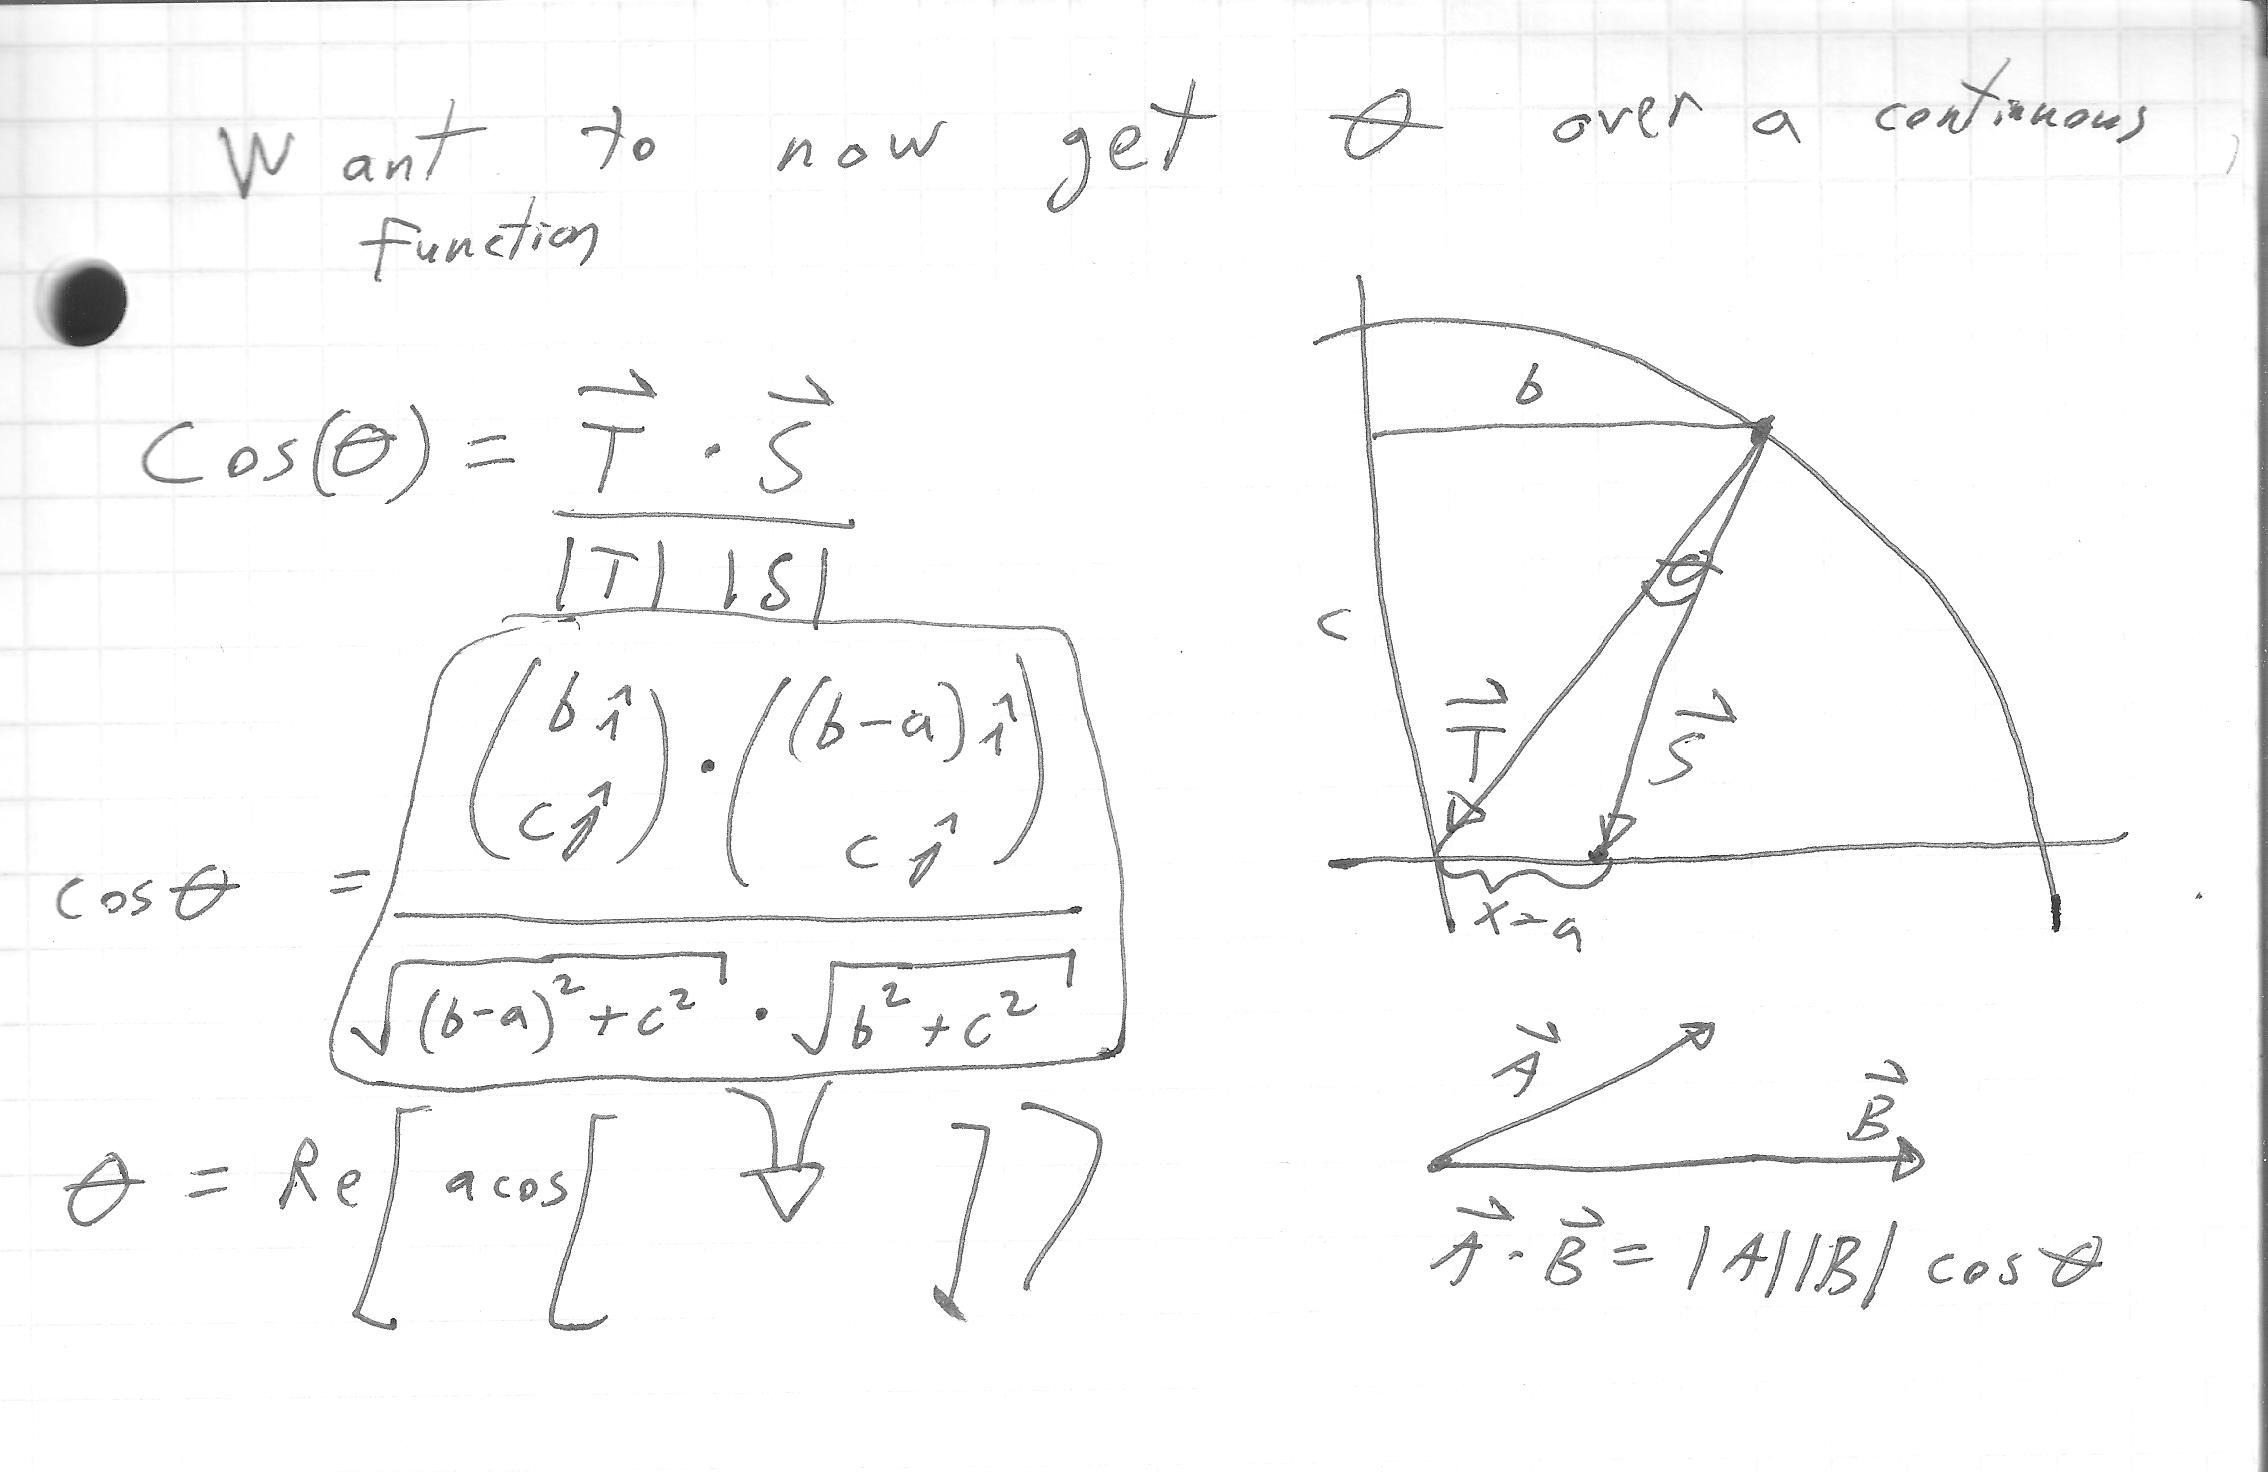 Want to now get θ over a continuous
function
Cos(θ) = T⃗ · S⃗
|T| |S|
cosθ = (b î c ĵ) · ((b-a) î c ĵ)
√((b-a)²+c²) · √(b²+c²)
θ = Re[acos[ ]]
b
c
θ
T⃗
S⃗
x=a
A⃗
B⃗
A⃗ · B⃗ = |A||B| cosθ